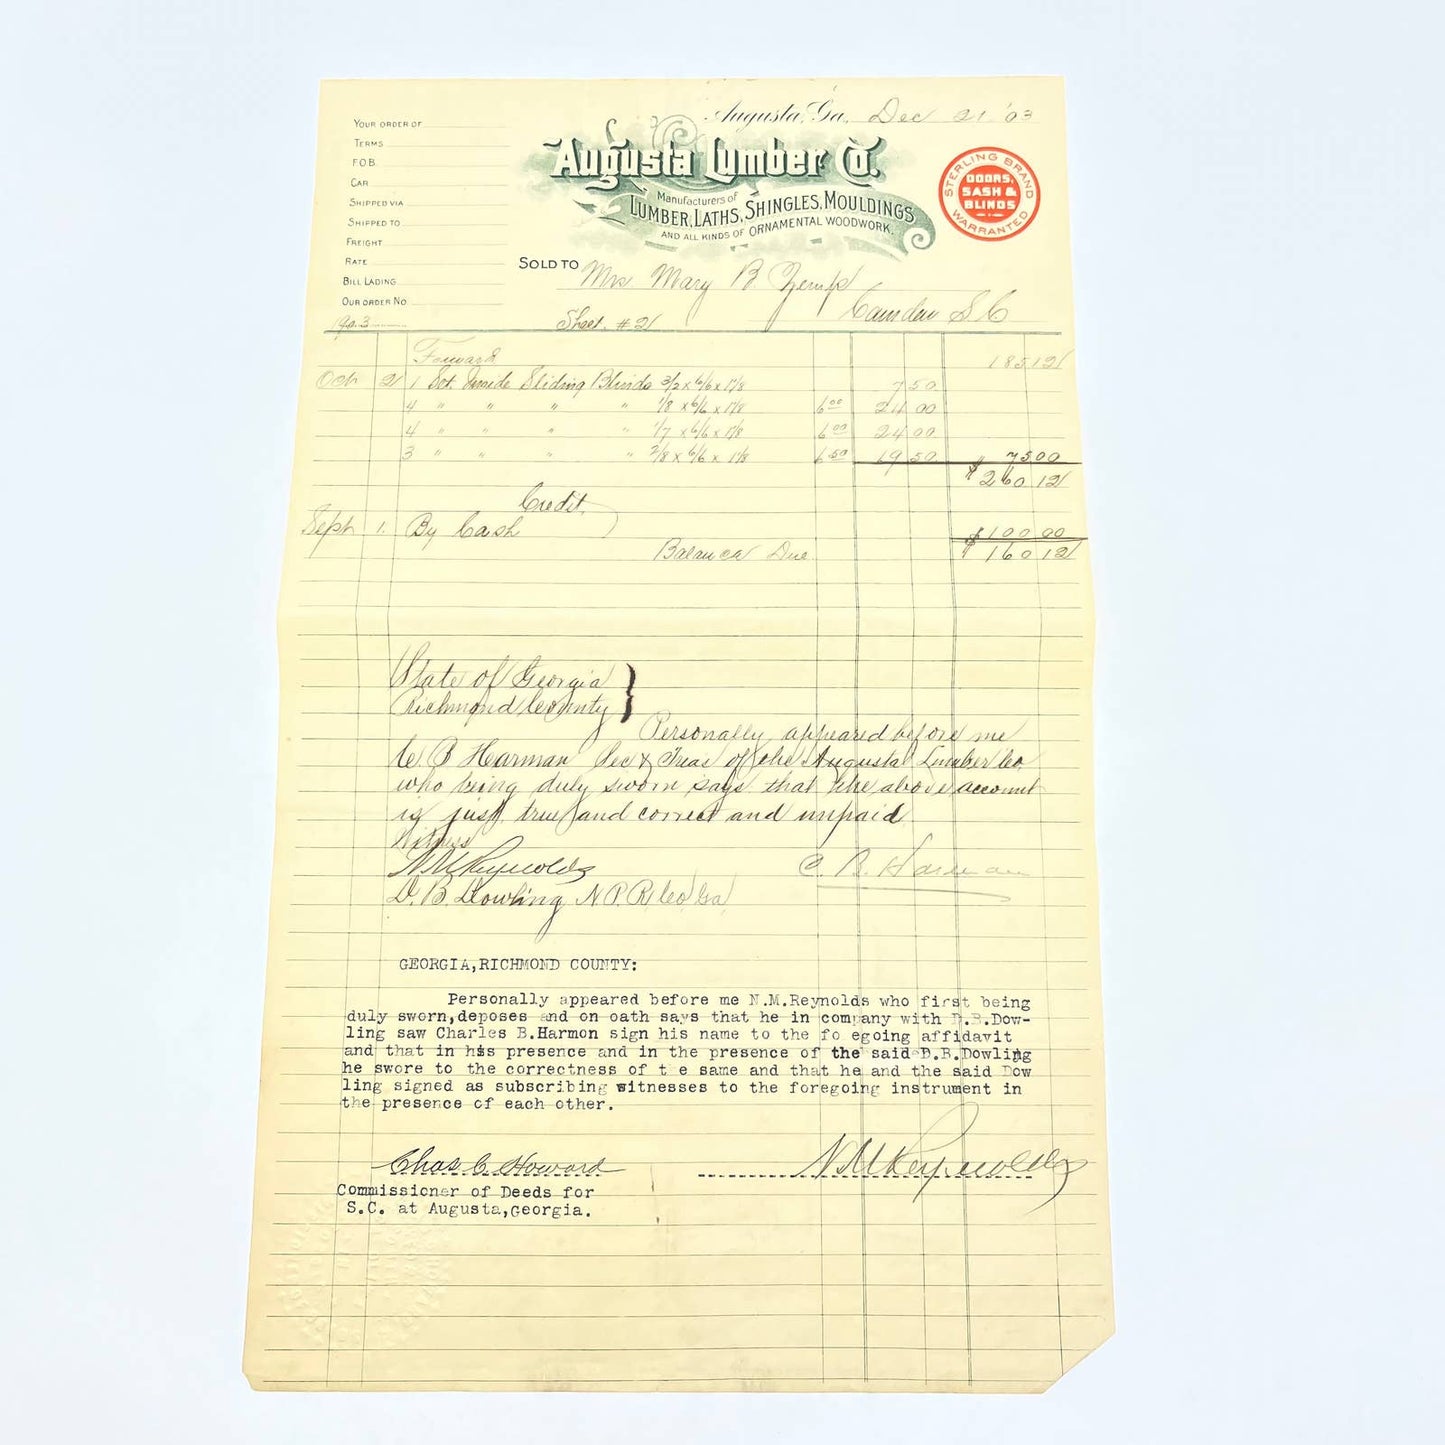 Augusta, Ga. Dec 21 '03
YOUR ORDER OF
TERMS
F.O.B.
CAR
SHIPPED VIA
SHIPPED TO
FREIGHT
RATE
BILL LADING
OUR ORDER NO
Augusta Lumber Co.
Manufacturers of
LUMBER, LATHS, SHINGLES, MOULDINGS
AND ALL KINDS OF ORNAMENTAL WOODWORK.
STERLING BRAND
DOORS,
SASH &
BLINDS
WARRANTED
SOLD TO Mrs. Mary B. Zemp
Camden S.C
1903 Sheet #2
Forward 185 12
Oct 2 1 Set Inside Sliding Blinds 3/2 x 6/6 x 1 1/8 7 50
4 " " " " 1/8 x 6/6 x 1 1/8 6 00 24 00
4 " " " " 1/7 x 6/6 x 1 1/8 6 00 24 00
3 " " " " 2/8 x 6/6 x 1 1/8 6 50 19 50 75 00
$ 260 12
Credit
Sept 1. By Cash $ 100 00
Balance Due $ 160 12
State of Georgia
Richmond County
Personally appeared before me
C B Harman Sec & Treas of the Augusta Lumber Co
who being duly sworn says that the above account
is just, true and correct and unpaid
Witness
N M Reynolds C. B. Harman
D. B. Dowling N.P. R. Co. Ga
GEORGIA,RICHMOND COUNTY:
Personally appeared before me N.M.Reynolds who first being
duly sworn,deposes and on oath says that he in company with D.B.Dow-
ling saw Charles B.Harmon sign his name to the fo egoing affidavit
and that in his presence and in the presence of the said D.B.Dowling
he swore to the correctness of t e same and that he and the said Dow
ling signed as subscribing witnesses to the foregoing instrument in
the presence of each other.
Chas C. Howard N M Reynolds
Commissioner of Deeds for
S.C. at Augusta,Georgia.